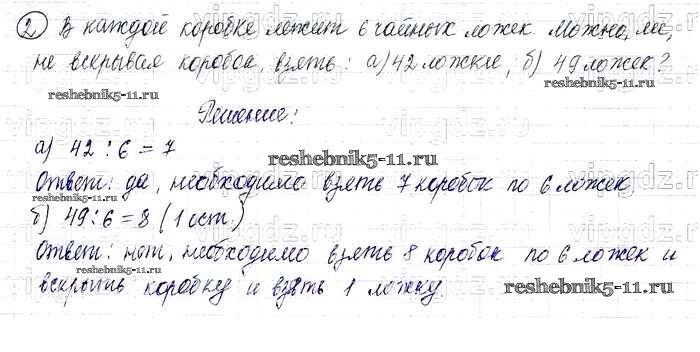 2 В каждой коробке лежит 6 чайных ложек. Можно ли,
не вскрывая коробок, взять: а) 42 ложки; б) 49 ложек?
reshebnik5-11.ru
reshebnik5-11.ru
Решение:
а) 42 : 6 = 7
reshebnik5-11.ru
Ответ: да, необходимо взять 7 коробок по 6 ложек
б) 49 : 6 = 8 (1 ост.)
reshebnik5-11.ru
Ответ: нет, необходимо взять 8 коробок по 6 ложек и
reshebnik5-11.ru
вскрыть коробку и взять 1 ложку.
reshebnik5-11.ru
vipgdz.ru